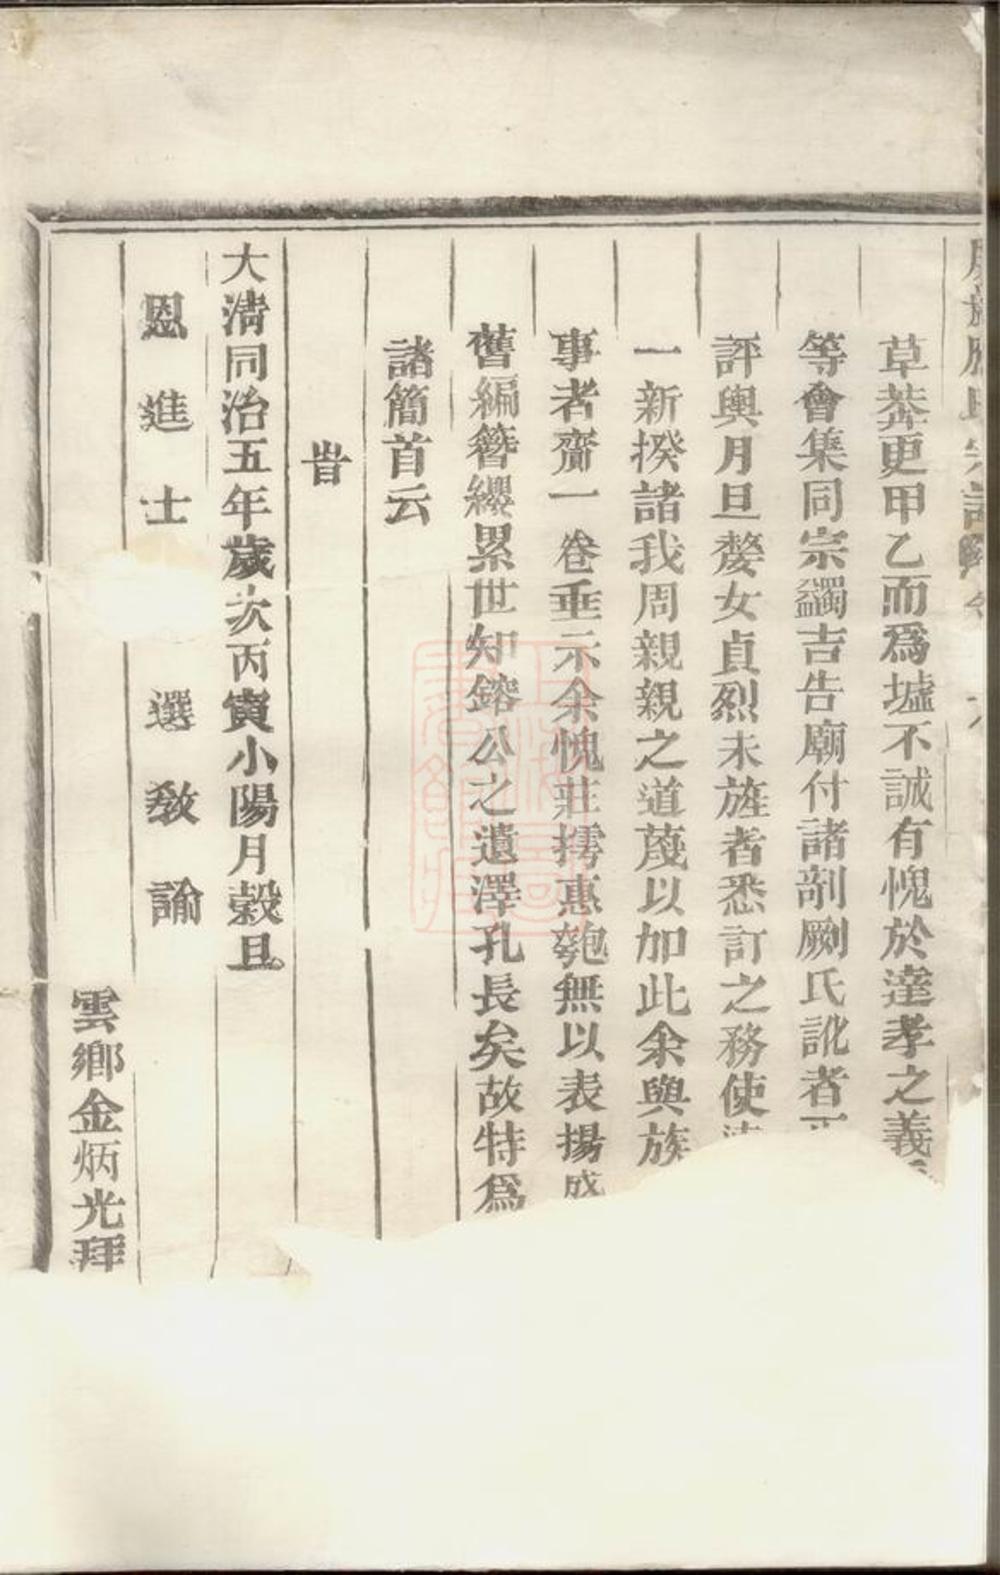 草莽更甲乙而爲墟不誠有愧於達孝之義
等會集同宗蠲吉告廟付諸剞劂氏訛者正
評輿月旦嫠女貞烈未旌者悉訂之務使
一新揆諸我周親親之道蔑以加此余與族
事者齎一卷垂示余愧莊摴惠匏無以表揚盛
舊編簪纓累世知鎔公之遺澤孔長矣故特爲
諸簡首云
旹
大淸同治五年歲次丙寅小陽月穀旦
恩進士
選教諭
雲鄉金炳光拜